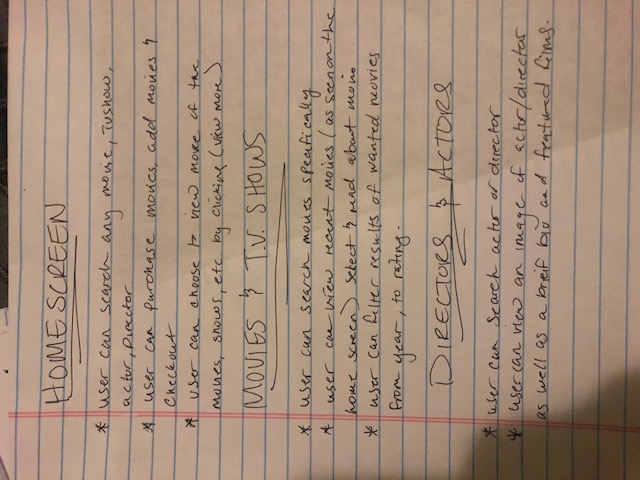 HOME SCREEN
* user can search any movie, TVshow,
actor, Director
* user can purchase movies, add movies &
checkout
* user can choose to view more of the
movies, shows, etc. by clicking (view more)
MOVIES & T.V. SHOWS
* user can search movies specifically
* user can view recent movies (as seen on the
home screen) select & read about movie
* user can filter results of wanted movies
from year, to rating.
DIRECTORS & ACTORS
* user can search actor or director
* user can view an image of actor/director
as well as a breif bio and featured films.